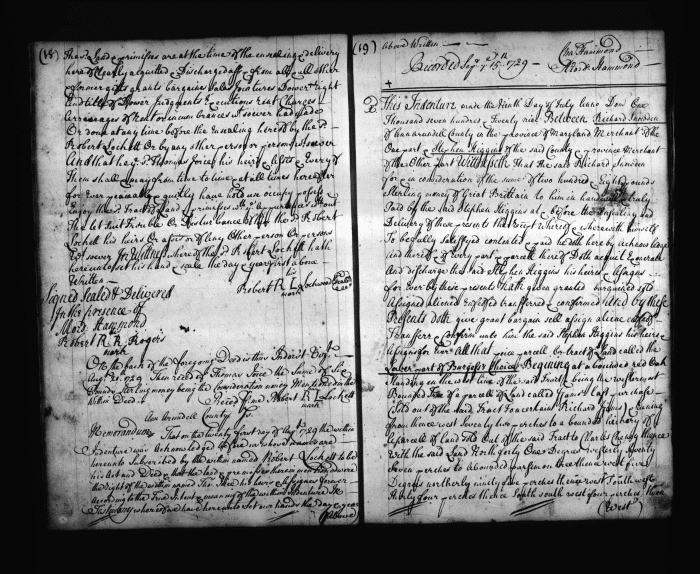 (18)
That ye said premises are at the time of the ensealing & delivery
hereof Clearly acquitted & Discharged off & from all & all other
former gifts grants bargains Sales Joyntures Dower Right
and title of Dower Judgments Executions Rent Charges
arrearages of Rent or incumbrances w:t soever had made
Or done at any time before the Ensealing hereof by the sd.
Robert Lockett Or by any other person or persons w:t soever
And that he ye sd. Thomas Joice his heirs & assigns & Every of
Them shall & may from time to time & at all times hereafter
for Ever peaceably & quietly have hold use occupy possess
& enjoy the sd. Tract of Land & premises with ye appurtenances
The let suit trouble Or Disturbance of him the sd. Robert
Lockett his heirs Or assigns or of any Other person Or persons
w:t soever In Witness whereof the sd. Robert Lockett hath
hereunto set his hand & seale the day & year first above
Written
his
Robert R L Lockett Seale
mark
Signed Sealed & Delivered
In the presence of
Mord: Hammond
Robert R R Rogers
mark
On the back of the foregoing Deed is this Indorst Vizt.
Augt. 20. 1729 Then reced of Thomas Joice the Sume of
pounds sterling money being the Consideration money Mentioned in the
Within Deed
Reced P me Robert R L Lockett
mark
Ann Arundell County Ss.
Memorandum That on the twenty first day of Augt. 1729 the within
Indenture was Acknowledged before us whose names are
hereunto Subscribed by the within named Robert Lockett to be
his Act and Deed & that the land & premises therein mentioned were
the Right of the within named Thos. Joice his heirs & assigns forever
According to the True Intent & meaning of the within Indenture In
Testimony whereof we have hereunto set our hands the day & year
(Above)
(19)
Above Written
Cha: Hammond
Mord: Hammond
Recorded Sepr. ye 15th 1729
This Indenture made the Ninth Day of July Anno Dom One
Thousand seven hundred & twenty nine Between Richard Snowden
of Ann arundell County in the province of Maryland Merchant of the
One part & Stephen Higgins of the said County & province Merchant
of the Other part Witnesseth That the said Richard Snowden
for & in consideration of the sume of two hundred & Eight pounds
Sterling money of Great Brittain to him in hand truly
Paid by the said Stephen Higgins at & before the Ensealing and
Delivery of these presents the receipt whereof & wherewith himself
To be fully Satisfyed contented & paid he doth hereby acknowledge
and thereof & of every part & parcell thereof Doth acquit Exonerate
And discharge the said Stephen Higgins his heires & assigns
for Ever by these presents Hath given granted bargained sold
Assigned aliened Enfeoffed transferred & confirmed And by these
Presents doth give grant bargain sell assign aliene enfeoff
Transferr & confirm unto him the said Stephen Higgins his heires &
assigns for Ever All that peice parcell or tract of Land called the
Lower part of Burgess's Choice Begining at a bounded red Oak
Standing on the west line of the said Tract being the westermost
Bounded Tree of a parcell of land called James's Last purchase
Sold out of the said Tract Foacershain Richard Jones & Runing
from thence west Seventy two perches to a bounded hickory of
a parcell of land sold out of the said Tract to Charles Cheyney thence
With the said Land North forty One Degrees westerly Seventy
Seven perches to a bounded persimon tree thence west five
Degrees northerly ninety five perches thence west South west
thirty four perches thence South south west four perches then
(West)